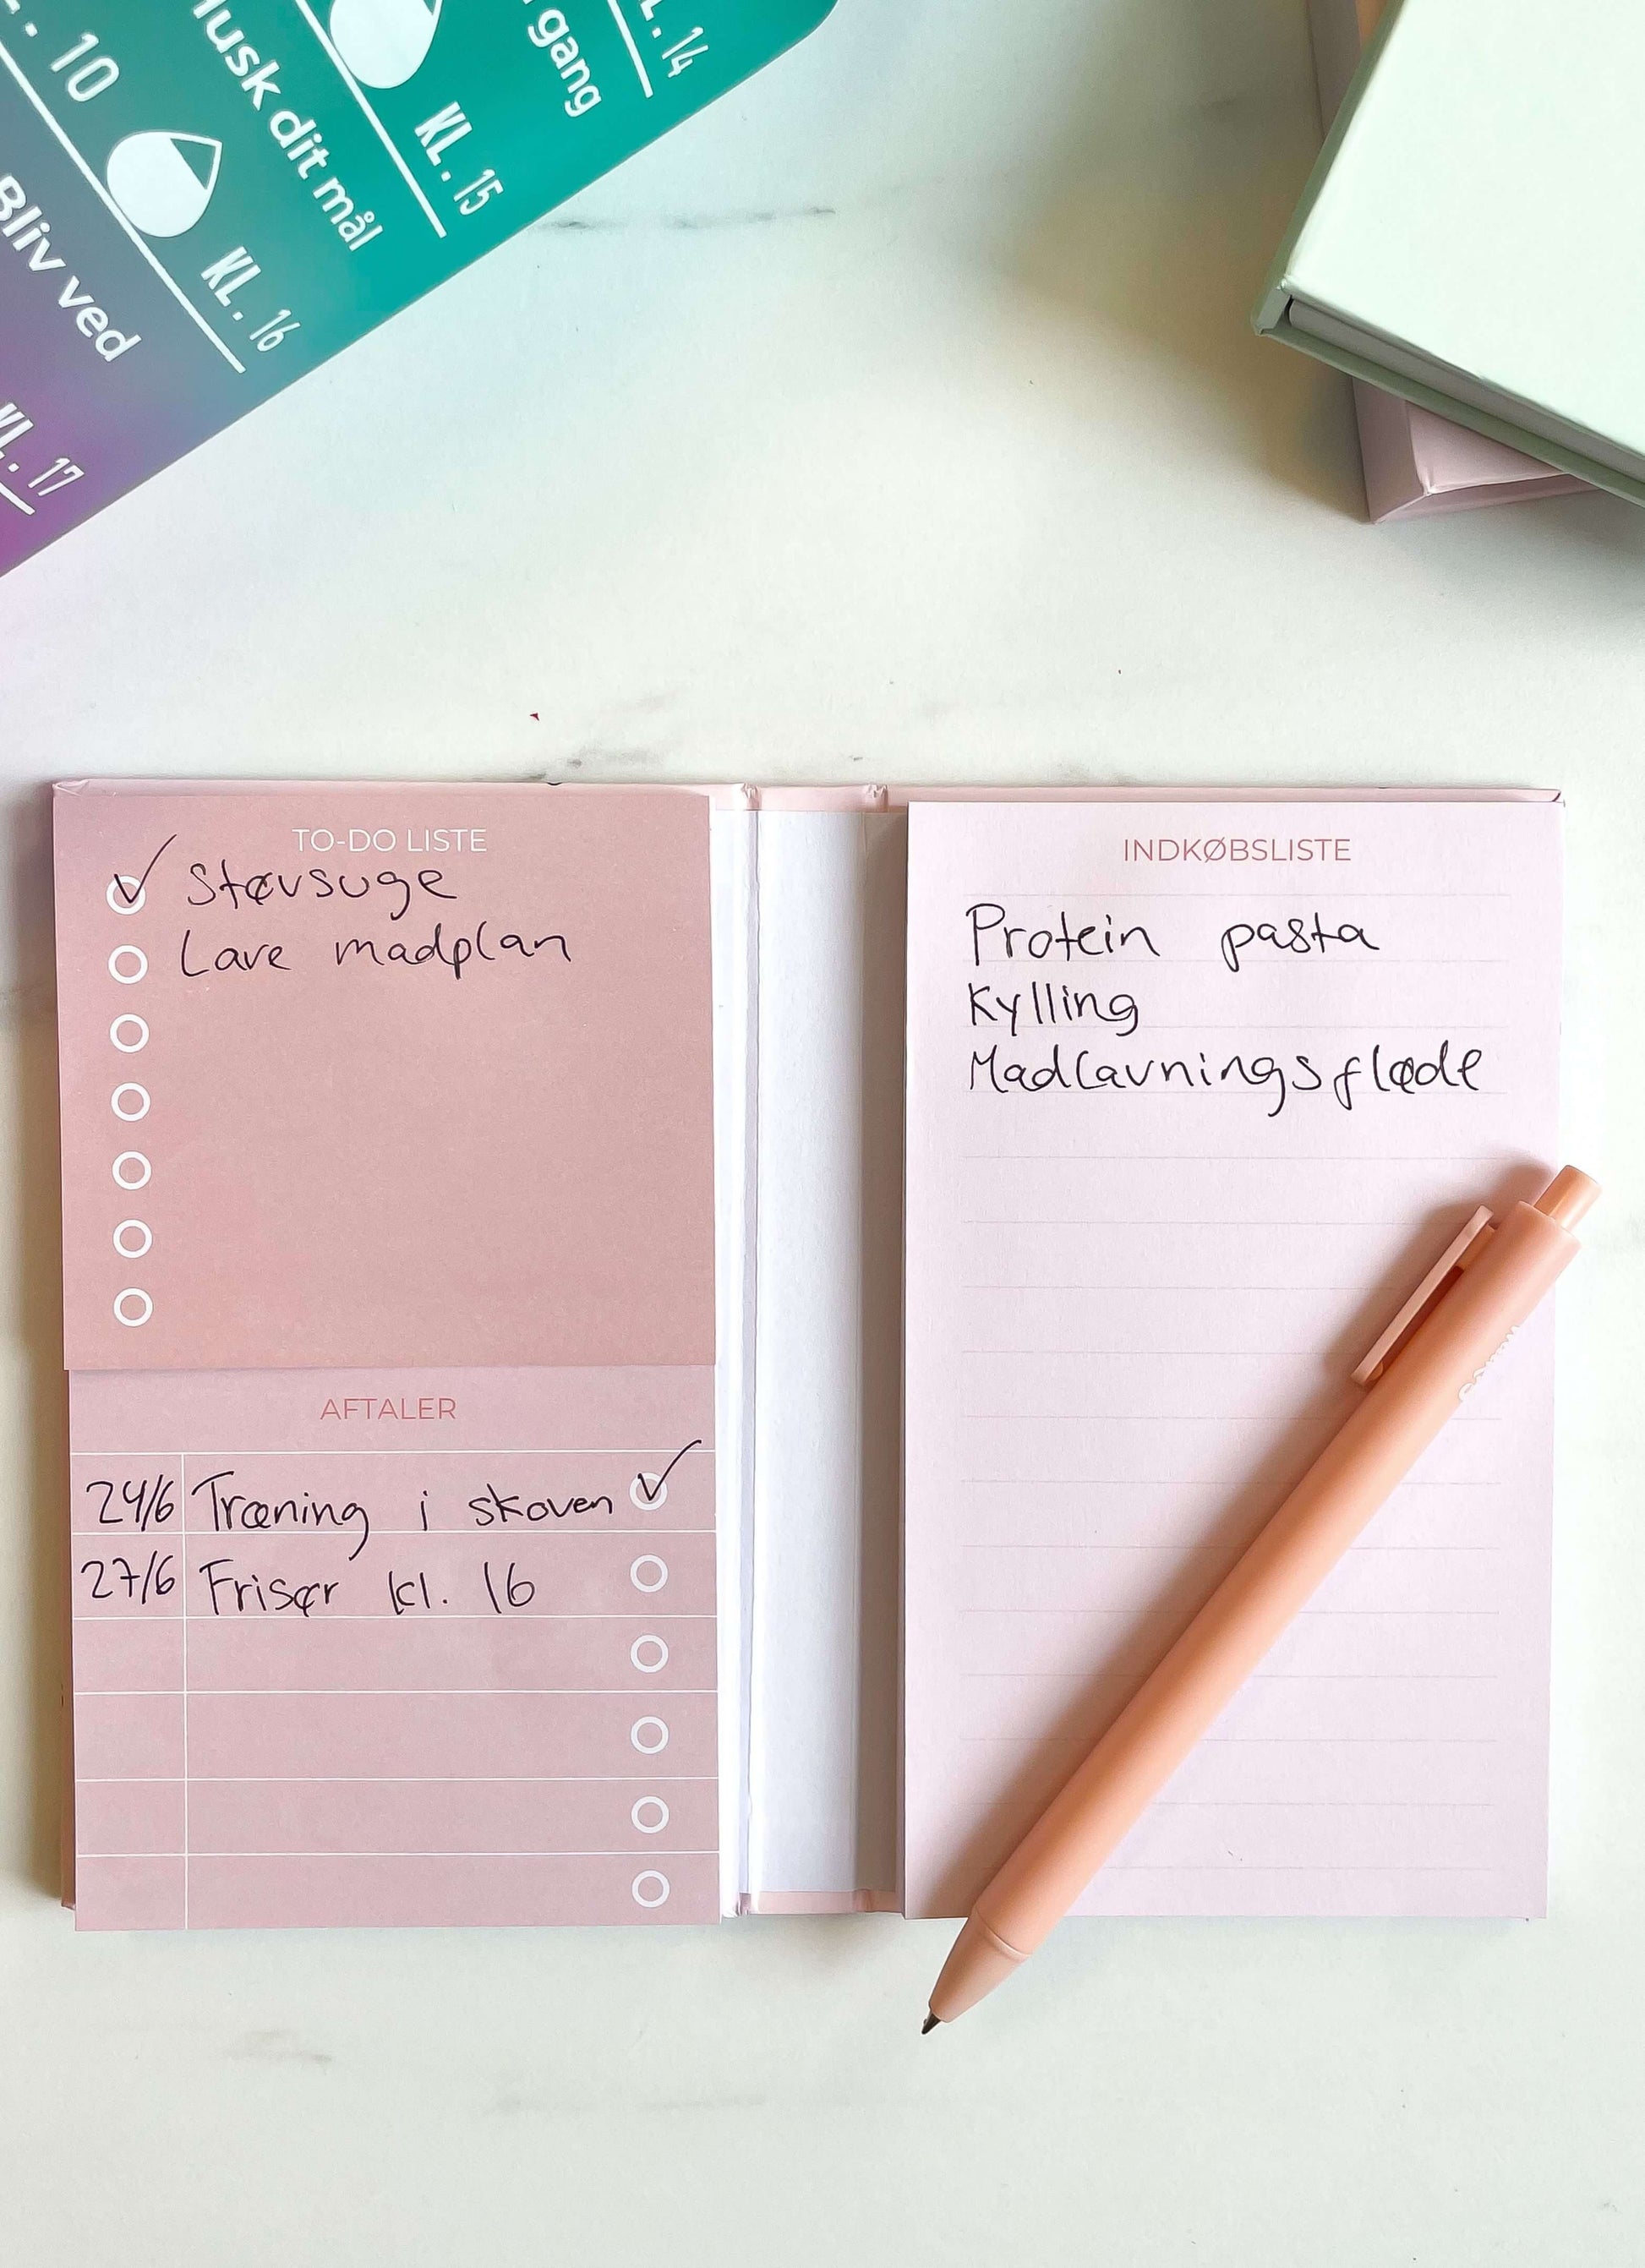 KL. 14
gang
KL. 15
Husk dit mål
KL. 10
KL. 16
Bliv ved
KL. 17
TO-DO LISTE
Støvsuge
Lave madplan
AFTALER
24/6 Træning i skoven
27/6 Frisør kl. 16
INDKØBSLISTE
Protein pasta
Kylling
Madlavningsfløde